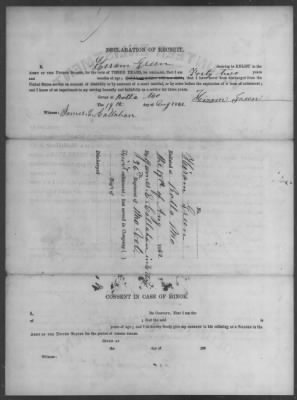 DECLARATION OF RECRUIT.
I, Hiram Green desiring to ENLIST in the
ARMY OF THE UNITED STATES, for the term of THREE YEARS, Do declare, That I am Forty two years
and months of age; that I have never been discharged from the
United States service on account of disability or by sentence of a court martial, or by order before the expiration of a term of enlistment; and
I know of no impediment to my serving honestly and faithfully as a soldier for three years.
Given at Rolla Mo
The 19th day of Aug 1862
Hiram Green
Witness:
James L. Callahan
No.
Hiram Green
Enlisted at Rolla Mo
the 19th of Aug 1862
By James L. Callahan
Regiment of Mo Vol
enlistment; last served in Company ( )
Reg't of
Discharged
CONSENT IN CASE OF MINOR.
I, Do CERTIFY, That I am the
of ; that the said is
years of age; and I do hereby freely give my consent to his enlisting as a SOLDIER in the
ARMY OF THE UNITED STATES for the period of THREE YEARS.
GIVEN AT
the day of 186
Witness: